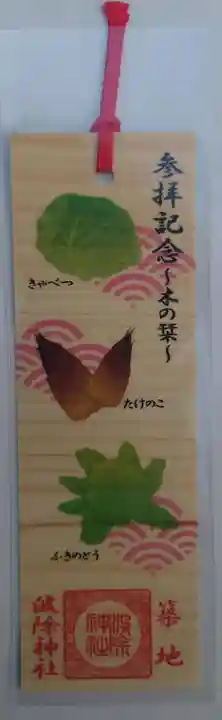 参拝記念〜木の栞〜
きゃべつ
たけのこ
ふきのとう
築地
波除神社
波除神社